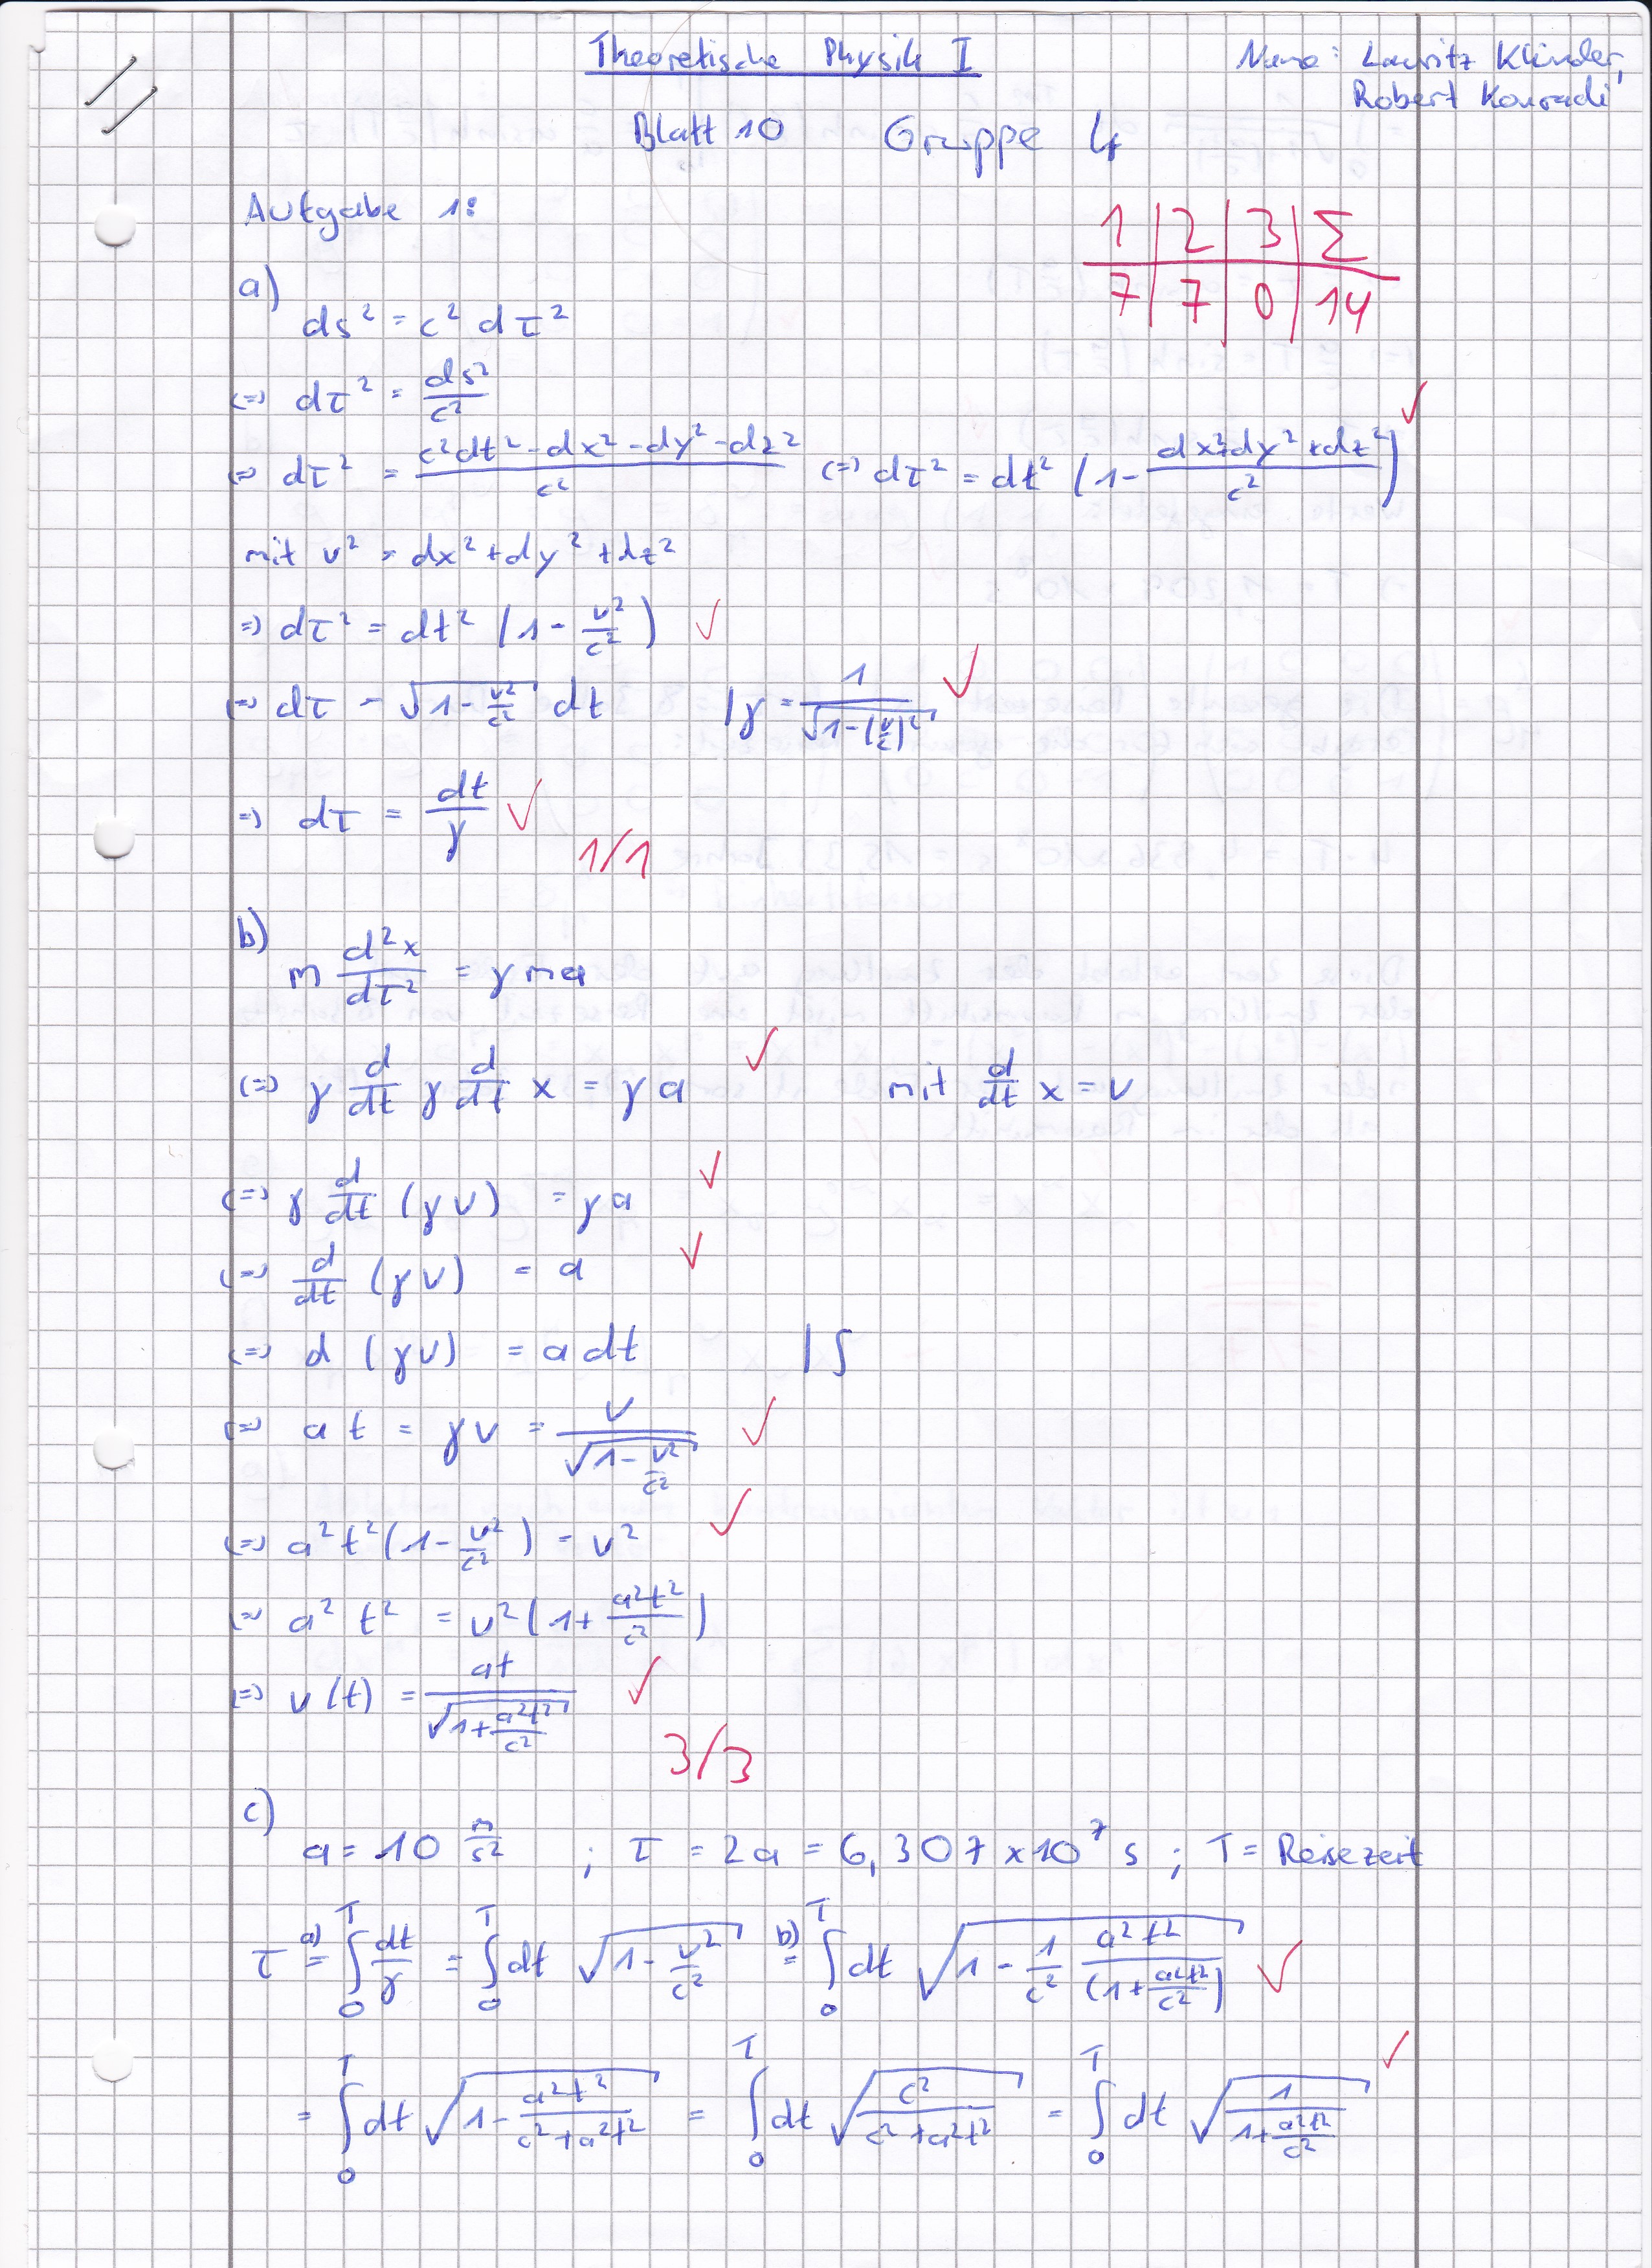 Theoretische Physik I
Name: Lauritz Klünder,
Robert Konradi
Blatt 10 Gruppe 4
Aufgabe 1:
1 | 2 | 3 | Σ
7 | 7 | 0 | 14
a)
ds² = c² dτ²
(=) dτ² = ds²/c² ✓
(=) dτ² = (c²dt² - dx² - dy² - dz²)/c² (=) dτ² = dt² (1 - (dx²+dy²+dz²)/c²)
mit v² = dx² + dy² + dz²
=) dτ² = dt² (1 - v²/c²) ✓
(=) dτ = √(1 - v²/c²) dt | γ = 1/√(1-(v/c)²) ✓
=) dτ = dt/γ ✓
1/1
b)
m d²x/dτ² = γ m a
(=) γ d/dt γ d/dt x = γ a ✓ mit d/dt x = v
(=) γ d/dt (γ v) = γ a ✓
(=) d/dt (γ v) = a ✓
(=) d (γ v) = a dt | ∫
(=) a t = γ v = v/√(1 - v²/c²) ✓
(=) a² t² (1 - v²/c²) = v² ✓
(=) a² t² = v² (1 + a²t²/c²)
(=) v(t) = at/√(1 + a²t²/c²) ✓
3/3
c)
a = 10 m/s² ; τ = 2a = 6,307 x 10⁷ s ; T = Reisezeit
τ =^{a)} ∫₀ᵀ dt/γ = ∫₀ᵀ dt √(1 - v²/c²) =^{b)} ∫₀ᵀ dt √(1 - 1/c² a²t²/(1 + a²t²/c²)) ✓
= ∫₀ᵀ dt √(1 - a²t²/(c² + a²t²)) = ∫₀ᵀ dt √(c²/(c² + a²t²)) = ∫₀ᵀ dt √(1/(1 + a²t²/c²)) ✓